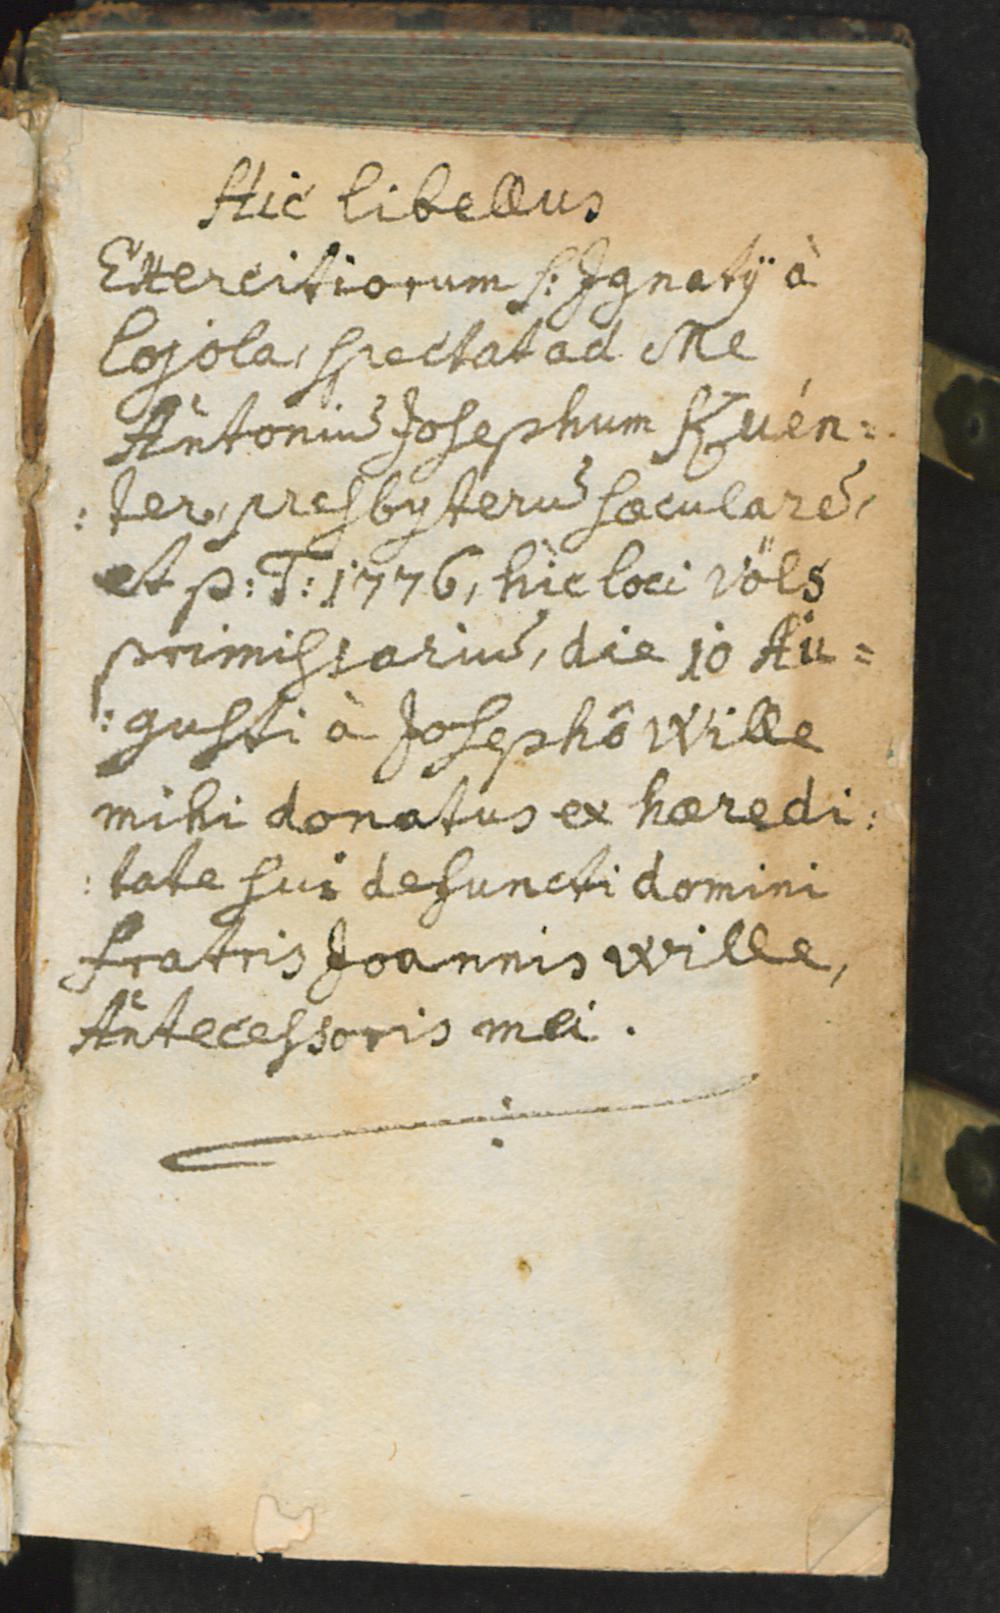 Hic libellus
Exercitiorum S: Ignatÿ à
Lojola, spectat ad Me
Antoniū Josephum Kuén=
:ter, presbyterū sæcularē,
et p: T: 1776, hìc loci Völs
primissariū, die 10 Au=
:gusti à Josephô Wille
mihi donatus ex hæredi:
:tate sui defuncti domini
fratris Joannis Wille,
Antecessoris mei.